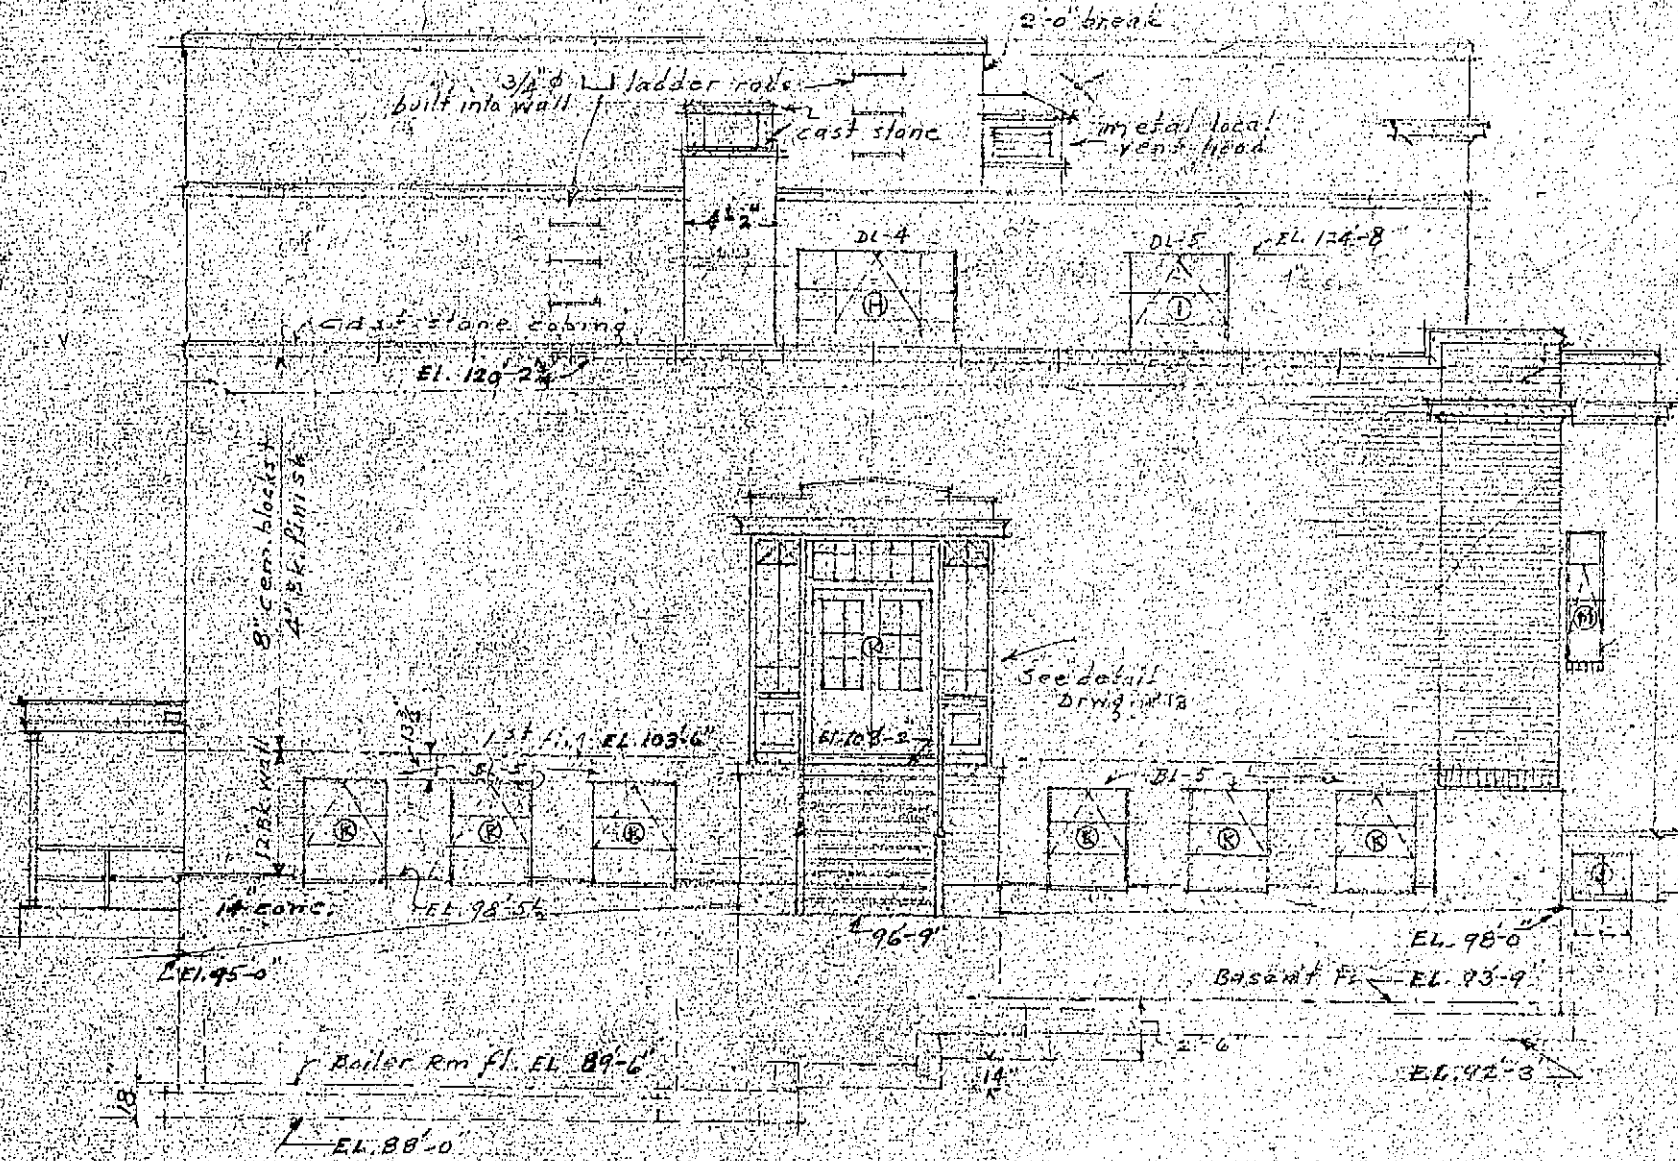 2'-0" break
3/4" ϕ ladder rods
built into wall
cast stone
metal
DL-4
DL-5
EL. 124'-8"
H
I
Cast stone coping
EL. 120'-2¾"
8" cem. blocks
4" Bk. finish
K
M
See detail
Drwg.
13¾"
1st fl. EL. 103'-6"
BL-5
BL-5
12" Bk wall
K
K
K
K
K
K
J
14" conc.
EL. 98'-5½"
96'-9"
EL. 98'-0"
EL. 95'-0"
Basem't FL. EL. 93'-9"
2'-6"
Boiler Rm fl. EL. 89'-6"
14"
EL. 92'-3"
18"
EL. 88'-0"